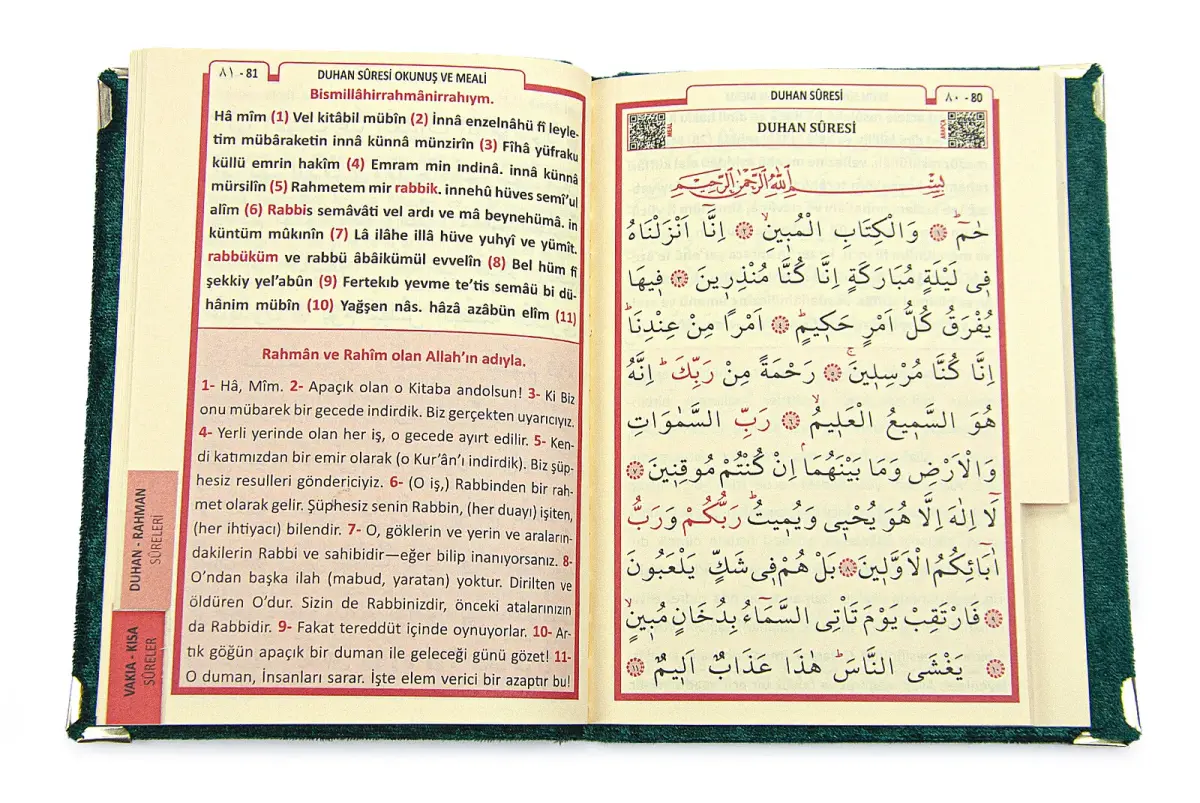 ٨١ - 81
DUHAN SÛRESİ OKUNUŞ VE MEALİ
Bismillâhirrahmânirrahıym.
Hâ mîm (1) Vel kitâbil mübîn (2) İnnâ enzelnâhü fî leyle-
tim mübâraketin innâ künnâ münzirîn (3) Fîhâ yüfraku
küllü emrin hakîm (4) Emram min ındinâ. innâ künnâ
mürsilîn (5) Rahmetem mir rabbik. innehû hüves semî'ul
alîm (6) Rabbis semâvâti vel ardı ve mâ beynehümâ. in
küntüm mûkınîn (7) Lâ ilâhe illâ hüve yuhyî ve yümît.
rabbüküm ve rabbü âbâikümül evvelîn (8) Bel hüm fî
şekkiy yel'abûn (9) Fertekıb yevme te'tis semâü bi dü-
hânim mübîn (10) Yağşen nâs. hâzâ azâbün elîm (11)
Rahmân ve Rahîm olan Allah'ın adıyla.
1- Hâ, Mîm. 2- Apaçık olan o Kitaba andolsun! 3- Ki Biz
onu mübarek bir gecede indirdik. Biz gerçekten uyarıcıyız.
4- Yerli yerinde olan her iş, o gecede ayırt edilir. 5- Ken-
di katımızdan bir emir olarak (o Kur'ân'ı indirdik). Biz şüp-
hesiz resulleri göndericiyiz. 6- (O iş,) Rabbinden bir rah-
met olarak gelir. Şüphesiz senin Rabbin, (her duayı) işiten,
(her ihtiyacı) bilendir. 7- O, göklerin ve yerin ve araların-
dakilerin Rabbi ve sahibidir—eğer bilip inanıyorsanız. 8-
O'ndan başka ilah (mabud, yaratan) yoktur. Dirilten ve
öldüren O'dur. Sizin de Rabbinizdir, önceki atalarınızın
da Rabbidir. 9- Fakat tereddüt içinde oynuyorlar. 10- Ar-
tık göğün apaçık bir duman ile geleceği günü gözet! 11-
O duman, İnsanları sarar. İşte elem verici bir azaptır bu!
DUHAN - RAHMAN
SÛRELERİ
VAKIA - KISA
SÛRELER
DUHAN SÛRESİ
٨٠ - 80
MEAL
DUHAN SÛRESİ
ARAPÇA
بِسْمِ اللّٰهِ الرَّحْمٰنِ الرَّحِيمِ
حٰمٓ ۚ ﴿١﴾ وَالْكِتَابِ الْمُبٖينِ ۙ ﴿٢﴾ اِنَّٓا اَنْزَلْنَاهُ
فٖى لَيْلَةٍ مُبَارَكَةٍ اِنَّا كُنَّا مُنْذِرٖينَ ﴿٣﴾ فٖيهَا
يُفْرَقُ كُلُّ اَمْرٍ حَكٖيمٍ ۙ ﴿٤﴾ اَمْرًا مِنْ عِنْدِنَا ؕ
اِنَّا كُنَّا مُرْسِلٖينَ ۚ ﴿٥﴾ رَحْمَةً مِنْ رَبِّكَ ؕ اِنَّهُ
هُوَ السَّمٖيعُ الْعَلٖيمُ ۙ ﴿٦﴾ رَبِّ السَّمٰوَاتِ
وَالْاَرْضِ وَمَا بَيْنَهُمَا ۘ اِنْ كُنْتُمْ مُوقِنٖينَ ﴿٧﴾
لَٓا اِلٰهَ اِلَّا هُوَ يُحْيٖى وَيُمٖيتُ ؕ رَبُّكُمْ وَرَبُّ
اٰبَٓائِكُمُ الْاَوَّلٖينَ ﴿٨﴾ بَلْ هُمْ فٖى شَكٍّ يَلْعَبُونَ
﴿٩﴾ فَارْتَقِبْ يَوْمَ تَاْتِى السَّمَٓاءُ بِدُخَانٍ مُبٖينٍ ۙ
﴿١٠﴾ يَغْشَى النَّاسَ ؕ هٰذَا عَذَابٌ اَلٖيمٌ ﴿١١﴾